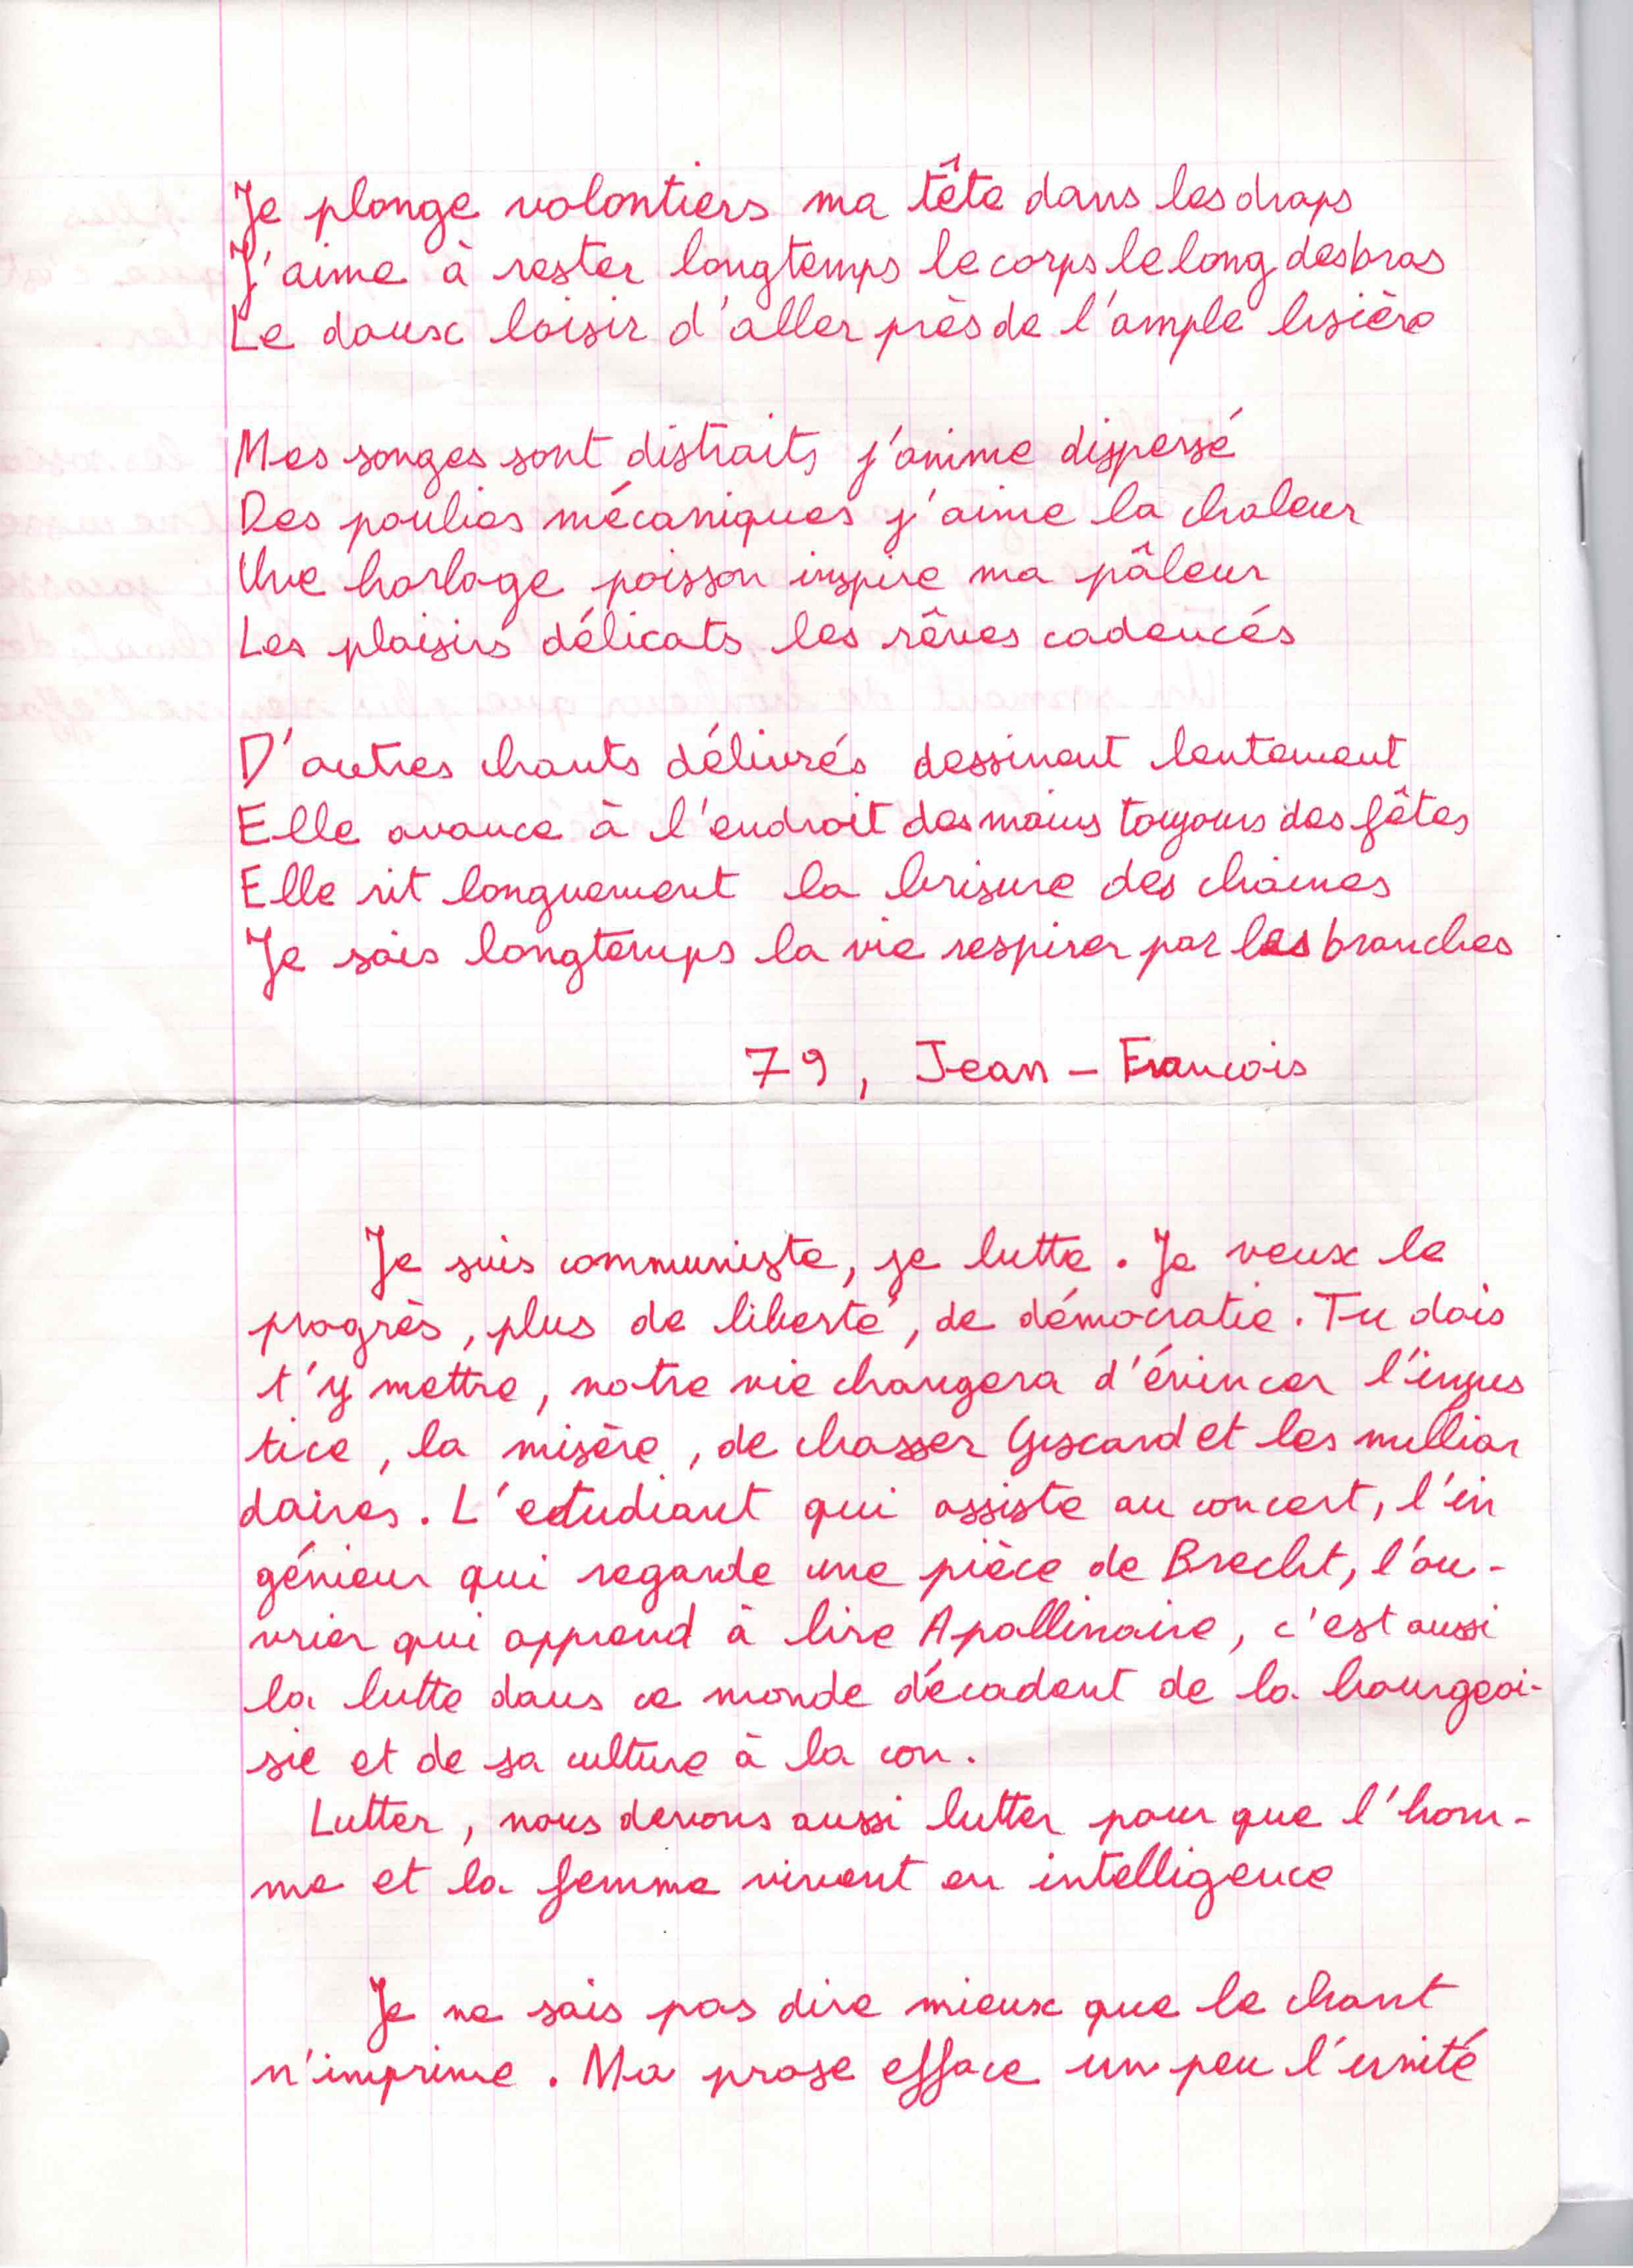 Je plonge volontiers ma tête dans les draps
J'aime à rester longtemps le corps le long des bras
Le doux loisir d'aller près de l'ample lisière
Mes songes sont distraits j'anime dispersé
Des poulies mécaniques j'aime la chaleur
Une horloge poisson inspire ma pâleur
Les plaisirs délicats les rêves cadencés
D'autres chants délivrés dessinent lentement
Elle avance à l'endroit des mains toujours des fêtes
Elle rit longuement la brisure des chaines
Je sais longtemps la vie respirer par les branches
79, Jean - Francois
Je suis communiste, je lutte. Je veux le
progrès, plus de liberté, de démocratie. Tu dois
t'y mettre, notre vie changera d'évincer l'injus
tice, la misère, de chasser Giscard et les milliar
daires. L'etudiant qui assiste au concert, l'in
génieur qui regarde une pièce de Brecht, l'ou-
vrier qui apprend à lire Apollinaire, c'est aussi
la lutte dans ce monde décadent de la bourgeoi-
sie et de sa culture à la con.
Lutter, nous devons aussi lutter pour que l'hom-
me et la femme vivent en intelligence
Je ne sais pas dire mieux que le chant
n'imprime. Ma prose efface un peu l'unité